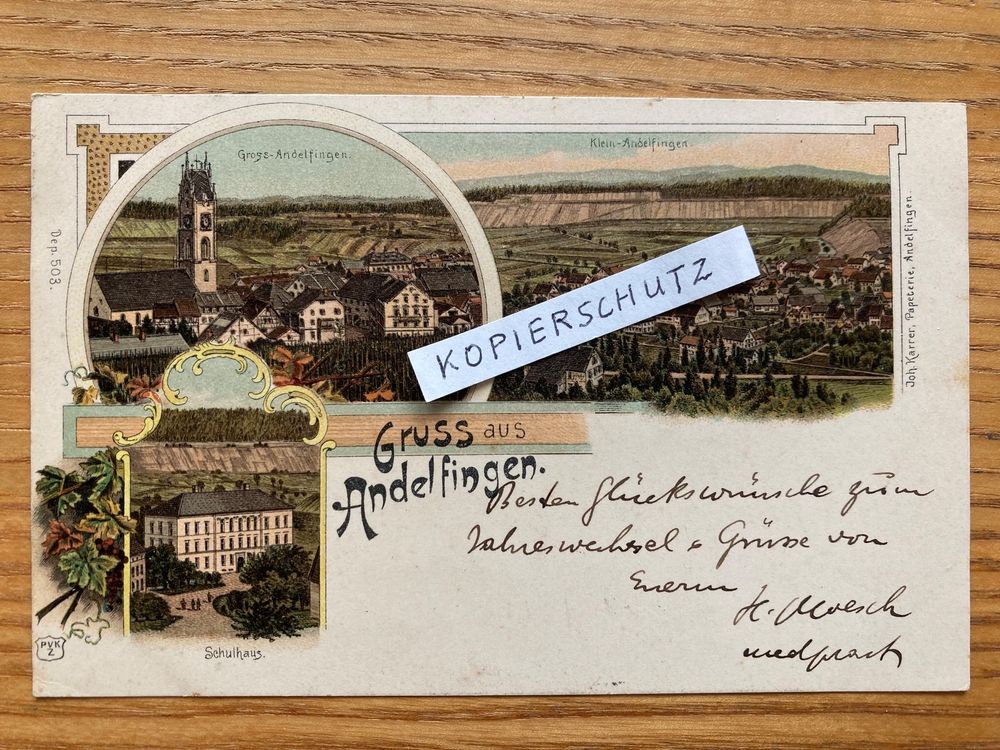 Gross-Andelfingen.
Klein-Andelfingen.
Dep. 503.
Joh. Karrer, Papeterie, Andelfingen.
KOPIERSCHUTZ
Gruss aus
Andelfingen.
Besten Glückswünsche zum
Jahreswechsel & Grüsse von
Euerm
H. Moesch
med pract
PVK
Z
Schulhaus.